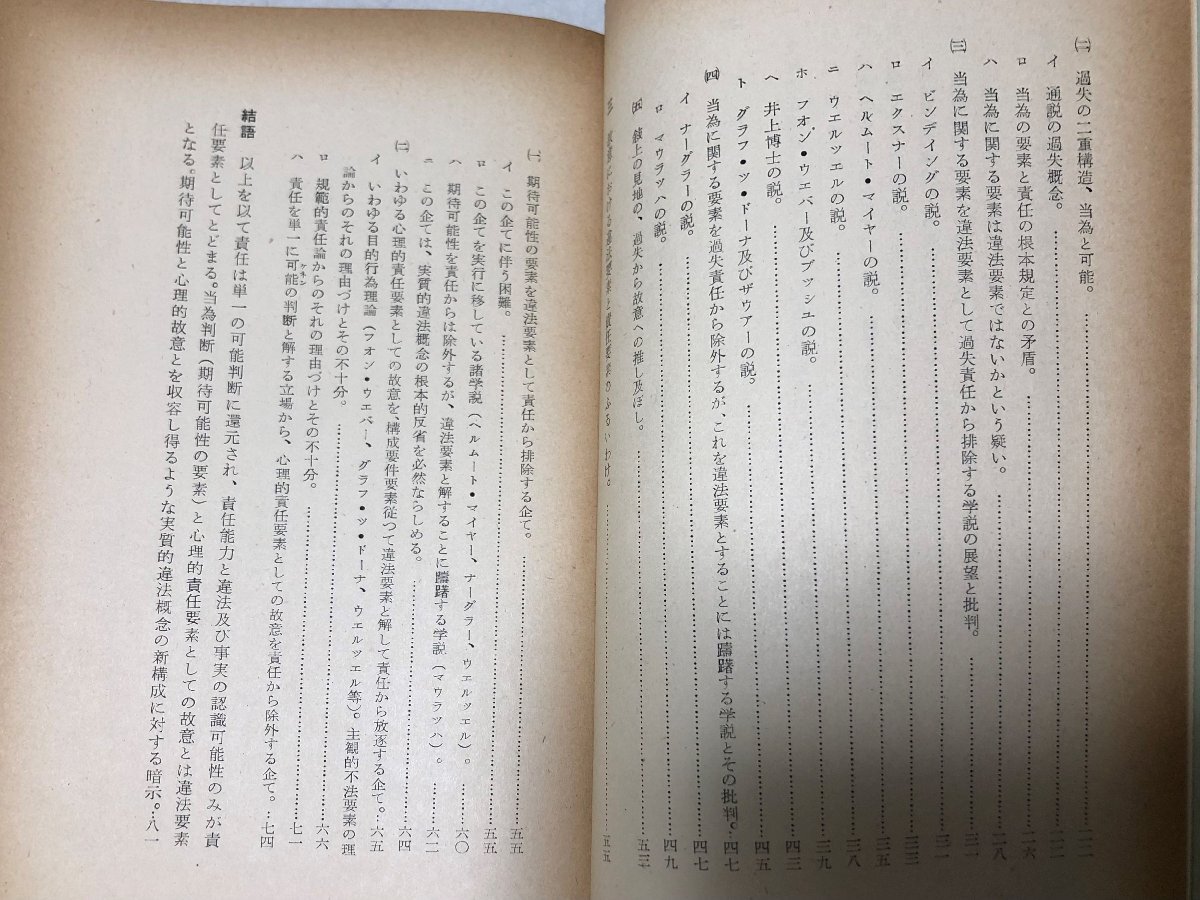 ㈡ 過失の二重構造、当為と可能。……二二
イ 通説の過失概念。……二二
ロ 当為の要素と責任の根本規定との矛盾。……二六
ハ 当為に関する要素は違法要素ではないかという疑い。……二八
㈢ 当為に関する要素を違法要素として過失責任から排除する学説の展望と批判。……三一
イ ビンディングの説。……三一
ロ エクスナーの説。……三三
ハ ヘルムート・マイヤーの説。……三五
ニ ウエルツエルの説。……三八
ホ フオン・ウエバー及びブッシユの説。……三九
ヘ 井上博士の説。……四三
ト グラフ・ツ・ドーナ及びザウアーの説。……四五
㈣ 当為に関する要素を過失責任から除外するが、これを違法要素とすることには躊躇する学説とその批判。……四七
イ ナーグラーの説。……四七
ロ マウラッハの説。……四九
㈤ 叙上の見地の、過失から故意への推し及ぼし。……五三
違法要素と責任要素のふるいわけ。……五五
㈠ 期待可能性の要素を違法要素として責任から排除する企て。……五五
イ この企てに伴う困難。……五五
ロ この企てを実行に移している諸学説(ヘルムート・マイヤー、ナーグラー、ウエルツエル)。……六〇
ハ 期待可能性を責任からは除外するが、違法要素と解することに躊躇する学説(マウラッハ)。……六二
ニ この企ては、実質的違法概念の根本的反省を必然ならしめる。……六四
㈡ いわゆる心理的責任要素としての故意を、構成要件要素従つて違法要素と解して責任から放逐する企て。……六五
イ いわゆる目的行為理論(フオン・ウエバー、グラフ・ツ・ドーナ、ウエルツエル等)。主観的不法要素の理
論からのそれの理由づけとその不十分。……六六
ロ 規範的責任論からのそれの理由づけとその不十分。……七一
ハ 責任を単一に可能(ケネン)の判断と解する立場から、心理的責任要素としての故意を責任から除外する企て。……七四
結語 以上を以て責任は単一の可能判断に還元され、責任能力と違法及び事実の認識可能性のみが責
任要素としてとどまる。当為判断(期待可能性の要素)と心理的責任要素としての故意とは違法要素
となる。期待可能性と心理的故意とを収容し得るような実質的違法概念の新構成に対する暗示。……八一